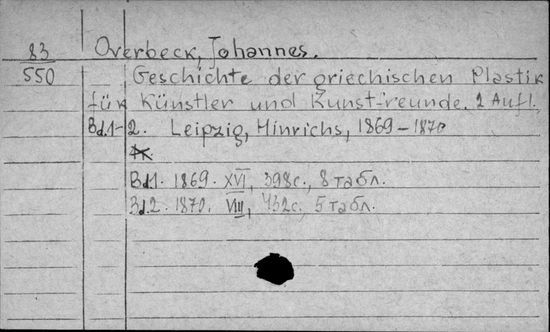 83 Overbeck, Johannes.
550 Geschichte der griechischen Plastik
für Künstler und Kunstfreunde. 2 Aufl.
Bd.1-2. Leipzig, Hinrichs, 1869-1870
Bd.1. 1869. XVI, 398c., 8 табл.
Bd.2. 1870. VIII, 432c., 5 табл.